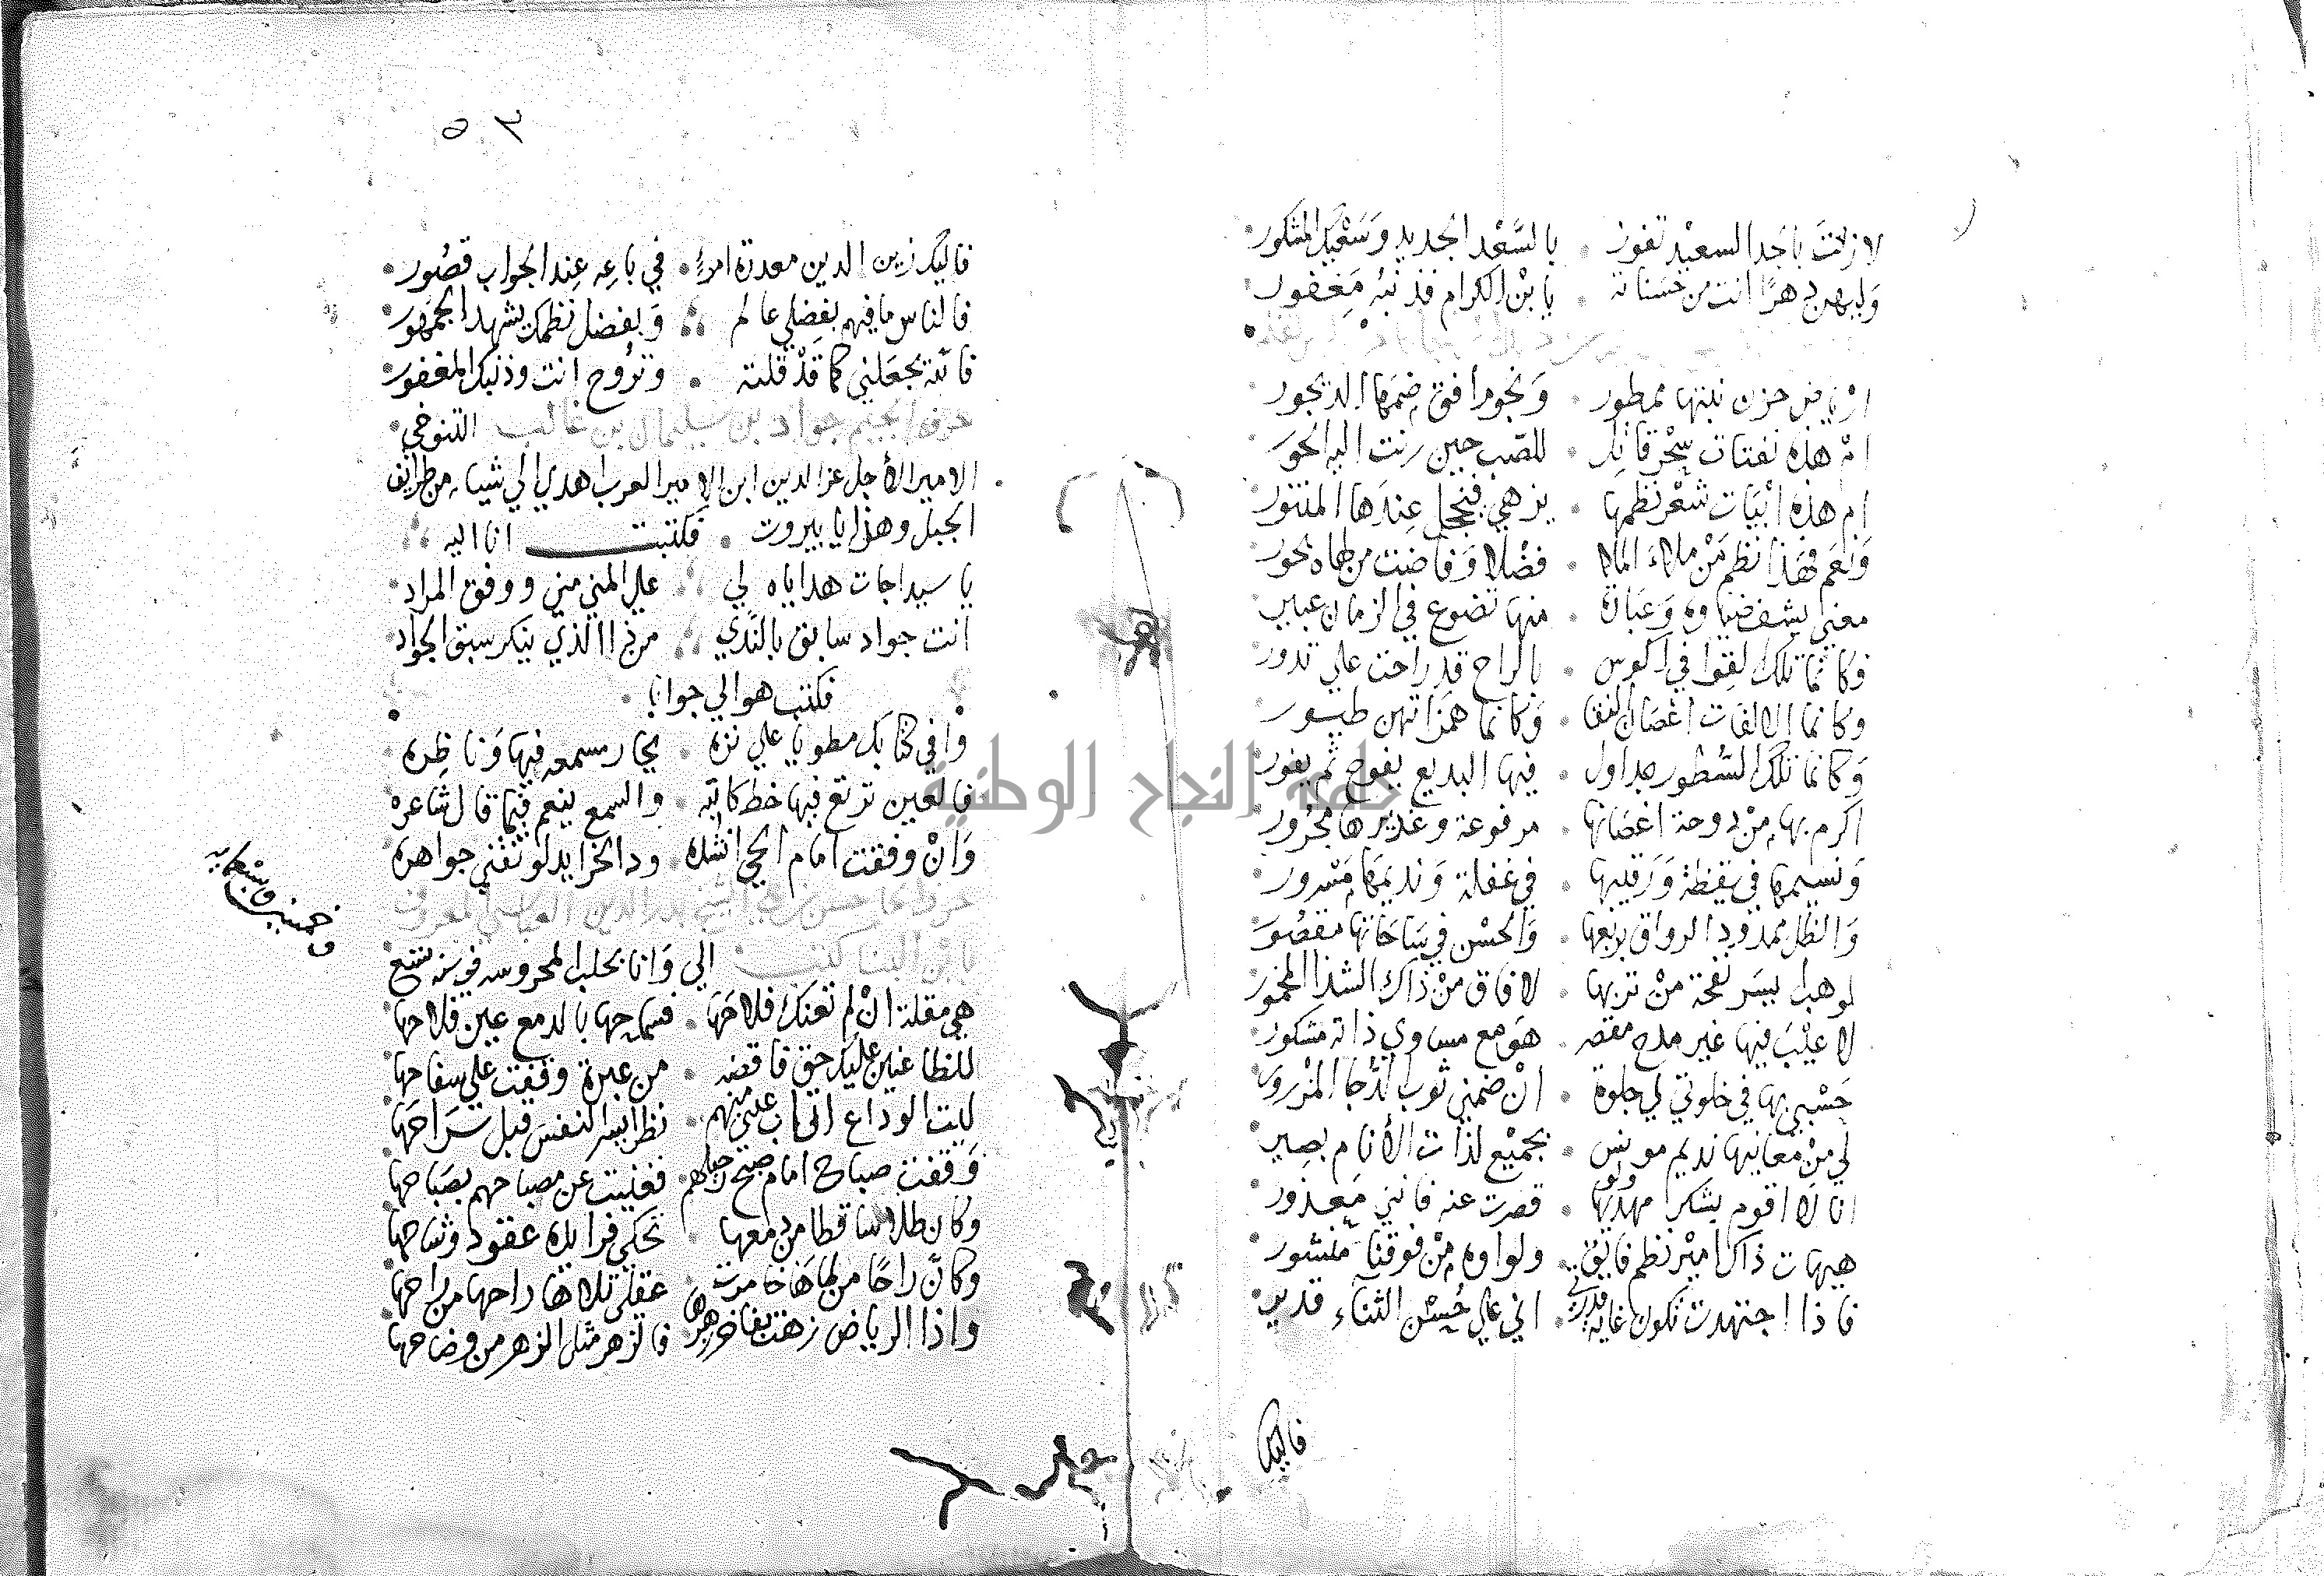 لا زلت يا جد السعيد تفوز . بالسعد الجديد وسعيك المشكور
وليهن دهرا انت من حسناته . يا بن الكرام فذنبه مغفور
حزن نبتها ممطور . ونجوم افق ضمها الديجور
ام هذه نفثات سحر قاتل . للصب حين رنت اليه الحور
ام هذه ابيات شعر نظمها . يزهي فيخجل عندها المنثور
ونعم فهذا نظم من ملاء الملا . فضلا وفاضت من لهاه بحور
معنى يشف ضياوه وعبارة . منها تضوع في الزمان عبير
وكانما تلك في اكوس . بالراح قد راحت علي تدور
وكانما الالفات اغصان النقا . وكانما همزاتهن طيور
وكانما تلك السطور جداول . فيها البديع يفوح ثم يفور
اكرم بها من دوحة اغصانها . مرفوعة وغديرها مجرور
ونسيمها في يقظة ورقيبها . في غفلة ونديمها مسرور
والظل ممدود الرواق بربعها . والحسن في ساحاتها مقصور
لو هب ايسر نفحة من تربها . لافاق من ذاك الشذا المخمور
لا عيب فيها غير مدح مقصر . هو مع مساوي ذاته مشكور
حسبي بها في خلوتي لي جلوة . ان ضمني ثوب الدجا المزرور
لي من معانيها نديم مونس . بجميع لذات الأنام بصير
انا لا اقوم بشكر مهديها ولو . قصرت عنه فانني معذور
هيهات ذاك امير نظم فايق . ولواوه من فوقنا منشور
فاذا اجتهدت تكون غاية قدرتي . اني على حسن الثناء قدير
فاليك
٥٠٣
فاليك زين الدين معذرة امرء . في باعه عند الجواب قصور
فالناس ما فيهم بفضلي عالم . وبفضل نظمك يشهد الجمهور
فالله يجعلني كما قد قلته . وتروح انت وذنبك المغفور
حرف الجيم جواد بن سليمان بن غالب التنوخي
الامير الأجل عز الدين ابن الامير العرب اهدي الي شيا من طرايف
الجبل وهدايا بيروت . فكتبت انا اليه
يا سيدا جات هداياه لي . على المنى مني ووفق المراد
انت جواد سابق بالندى . من ذا الذي ينكر سبق الجواد
فكتب هو الي جوابا .
وافى كتابك مطويا على نزه . يحار مسمعه فيها وناظره
فالعين ترتع فيها خط كاتبه . والسمع ينعم فيما قال شاعره
وان وقفت امام الحي انشده . ود الخرايد لو تقنى جواهره
حرف الحا حسن بن علي الشيخ بدر الدين المعروف
بابن البنا كتب الي وانا بحلب المحروسه في سنه تسع
وخمسين وسبعمايه
هي مقلة ان لم تعنك فلاحها . فسماحها بالدمع عين فلاحها
للظاعنين عليك حق فاقضه . من عبرة وقفت على سفاحها
ليت الوداع اتاب عني منهم . نظرا يسر النفس قبل سراحها
وقفت صباح امام صبح جباههم . فغنيت عن مصباحهم بصباحها
وكان طلا ساقطا من دمعها . تحكي فرايده عقود وشاحها
وكان راحا من لماها خامرت . عقلي تلاها راحها من راحها
واذا الرياض زهت بفاخر زهرها . فالزهر مثل الزهر من وضاحها
جامعة النجاح الوطنية